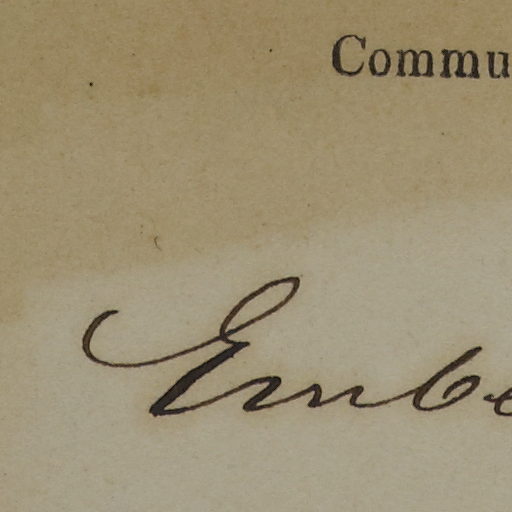 Commu
Embe